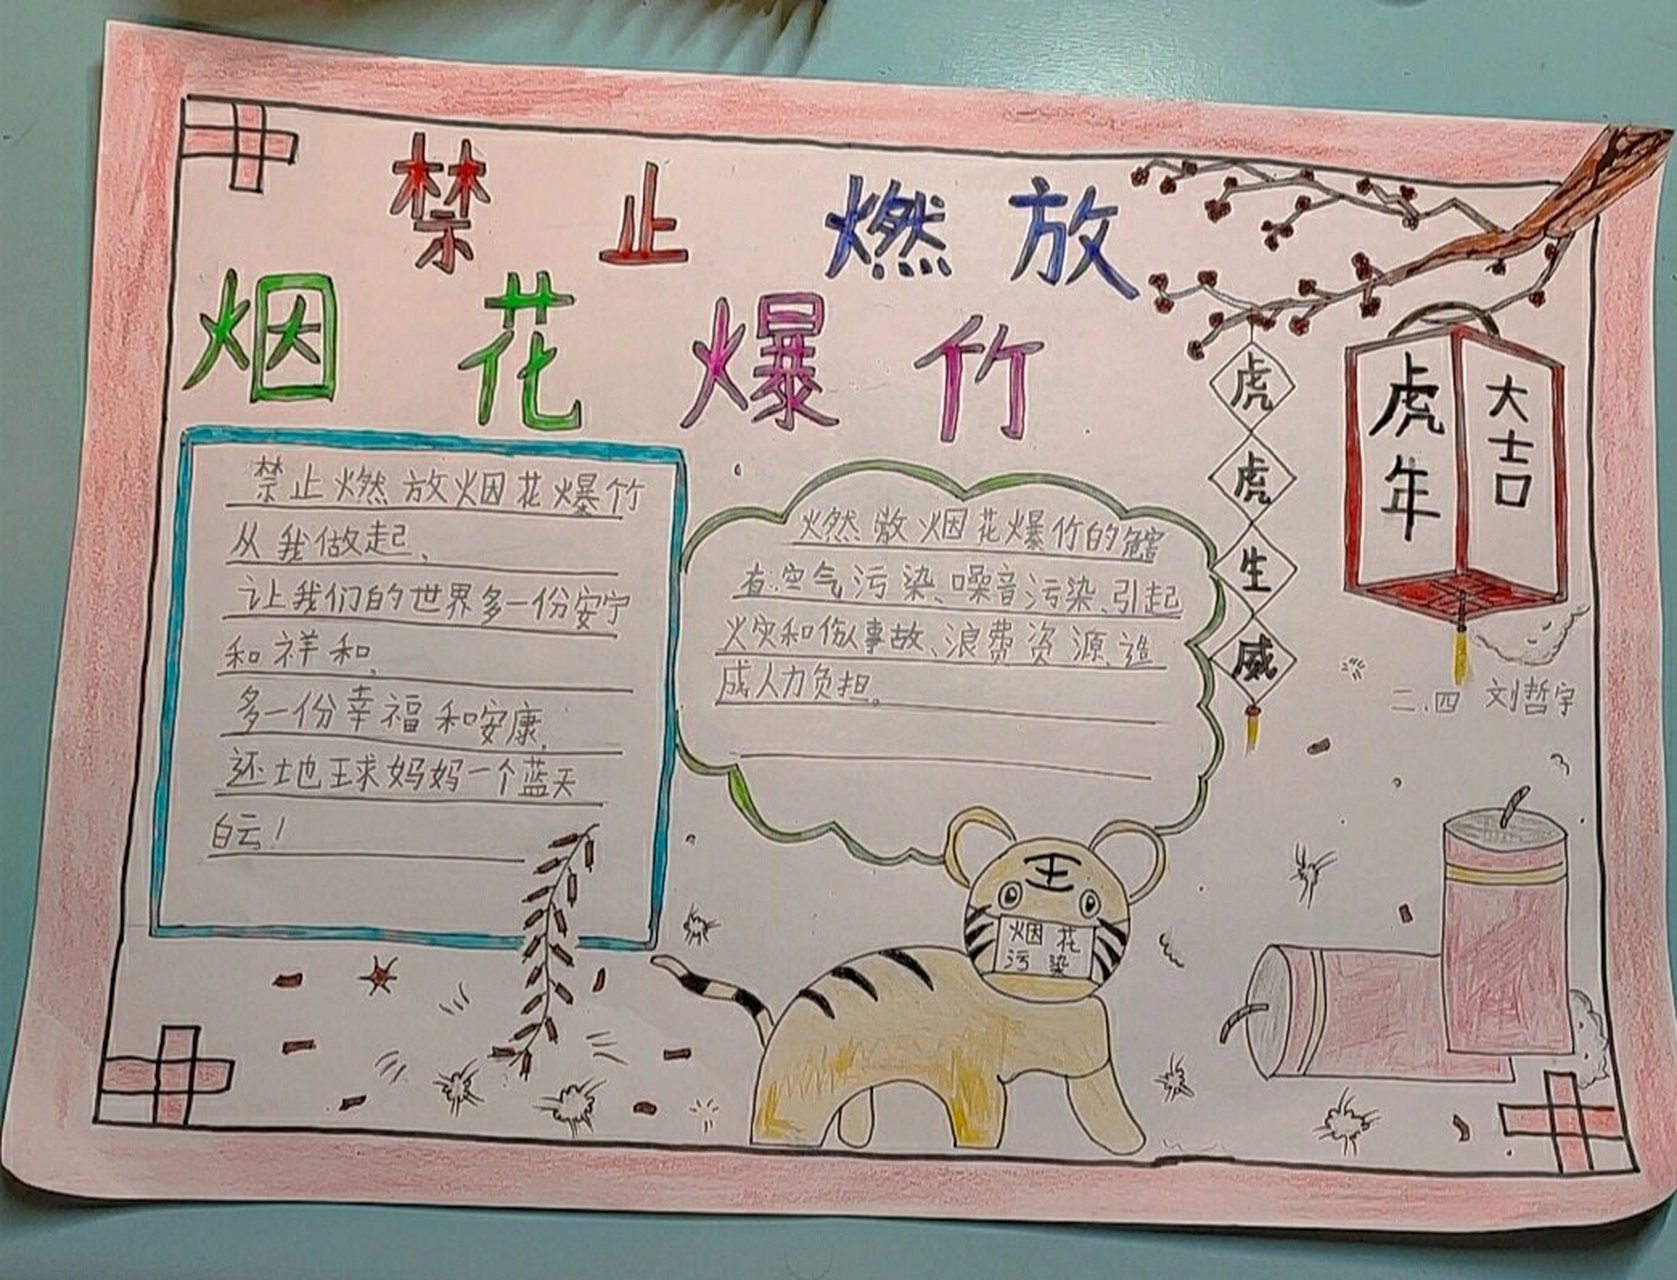 禁止燃放
烟花爆竹
禁止燃放烟花爆竹
从我做起、
让我们的世界多一份安宁
和祥和，
多一份幸福和安康，
还地球妈妈一个蓝天
白云！
燃放烟花爆竹的危害
有：空气污染、噪音污染、引起
火灾和伤人事故、浪费资源、造
成人力负担。
虎
虎
生
威
虎年
大吉
二.四 刘哲宇
王
烟花
污染